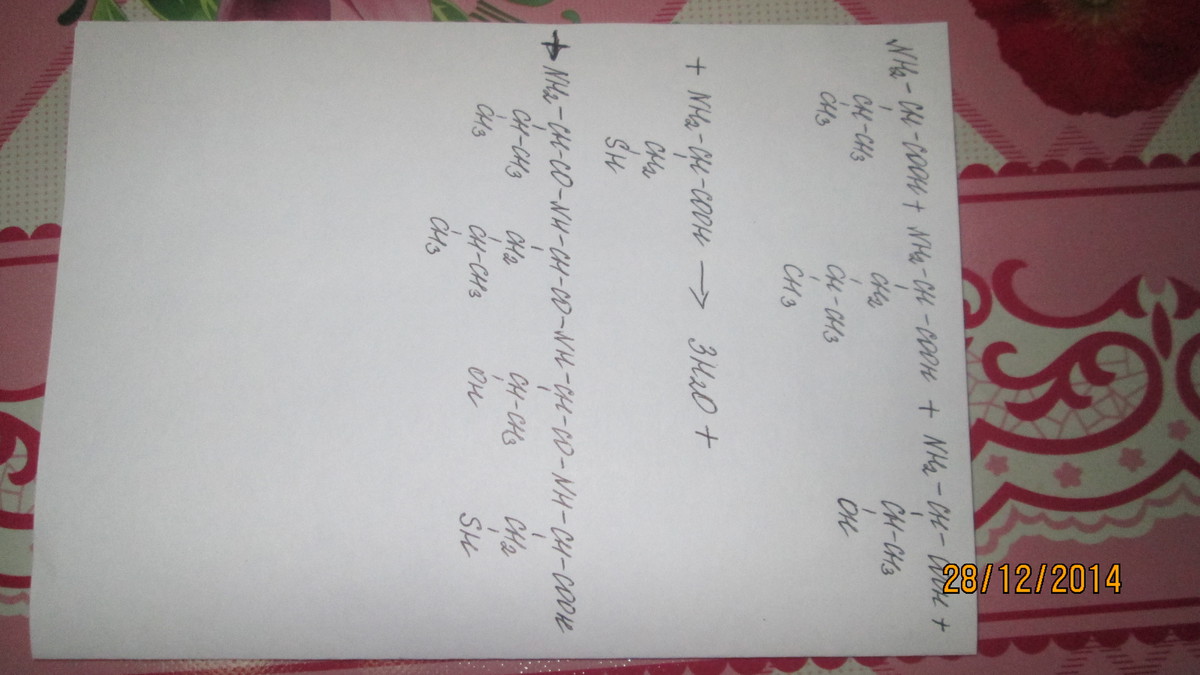 NH2-CH-COOH + NH2-CH-COOH + NH2-CH-COOH +
CH-CH3 CH2 CH-CH3
CH3 CH-CH3 OH
CH3
+ NH2-CH-COOH → 3H2O +
CH2
SH
+ NH2-CH-CO-NH-CH-CO-NH-CH-CO-NH-CH-COOH
CH-CH3 CH2 CH-CH3 CH2
CH3 CH-CH3 OH SH
CH3
28/12/2014